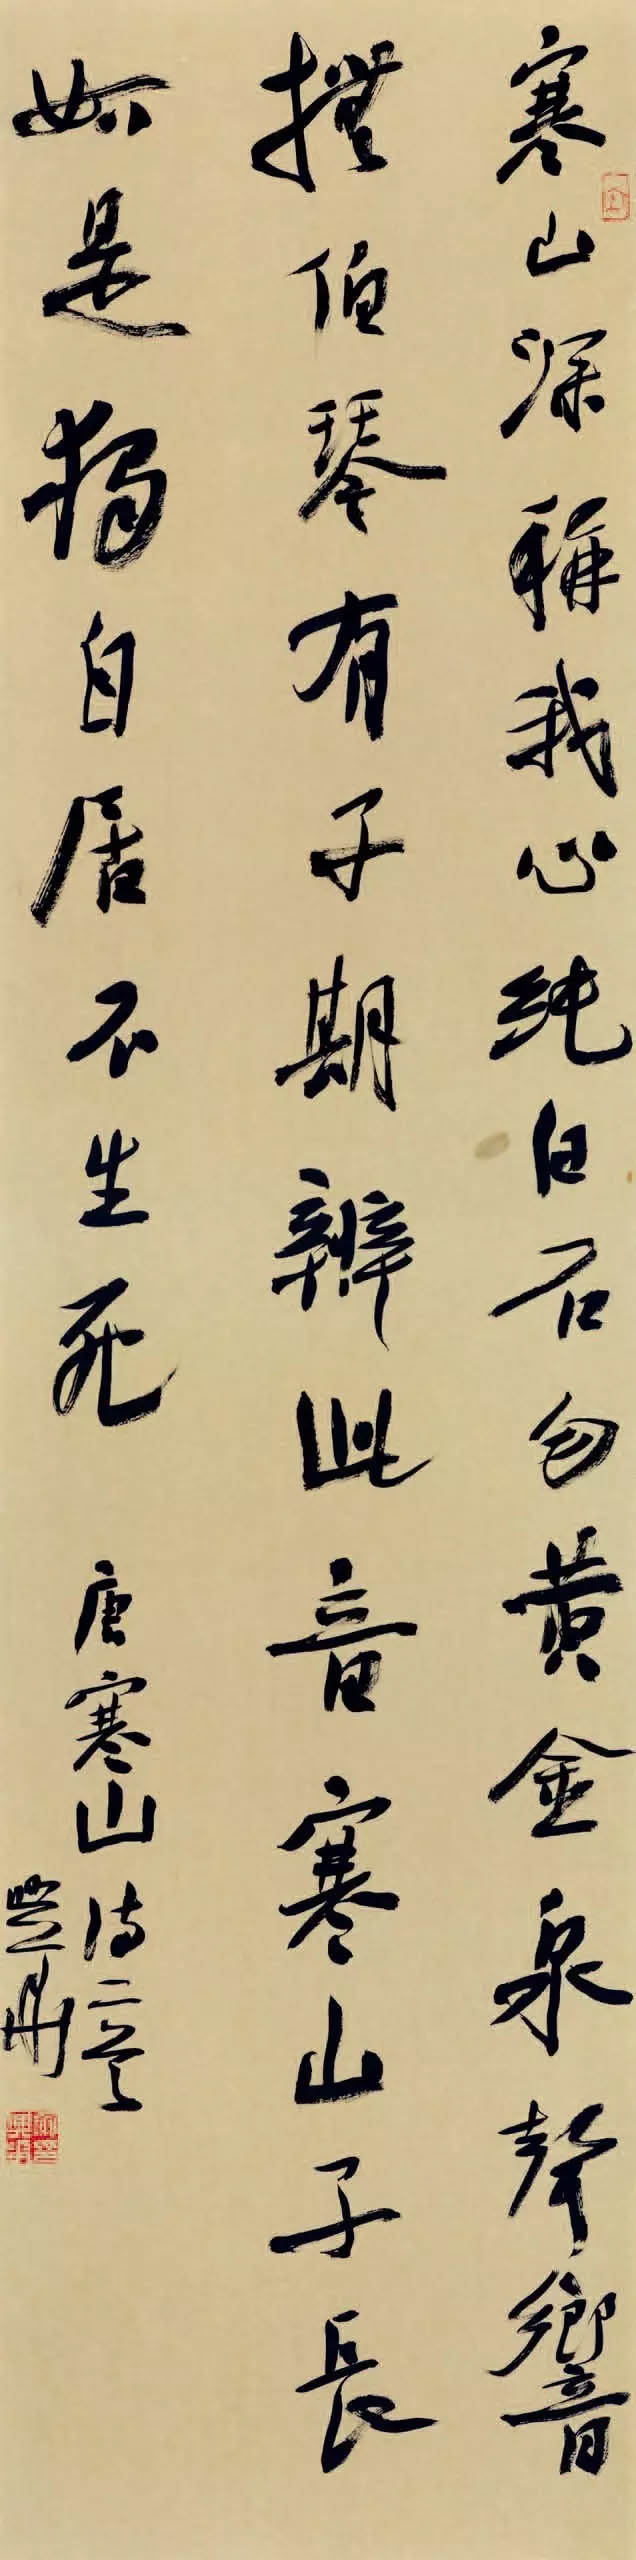 寒山深稱我心純白石勿黄金泉聲響
撫伯琴有子期辨此音寒山子長
如是獨自居不生死
唐寒山詩二首